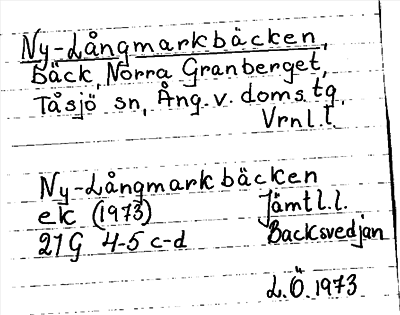 Ny-Långmarkbäcken,
Bäck, Norra Granberget,
Tåsjö sn, Ång. v. doms. tg.
Vrnl. l.
Ny-Långmarkbäcken
ek (1973) Jämtl. l.
21G 4-5 c-d Backsvedjan
L. Ö. 1973